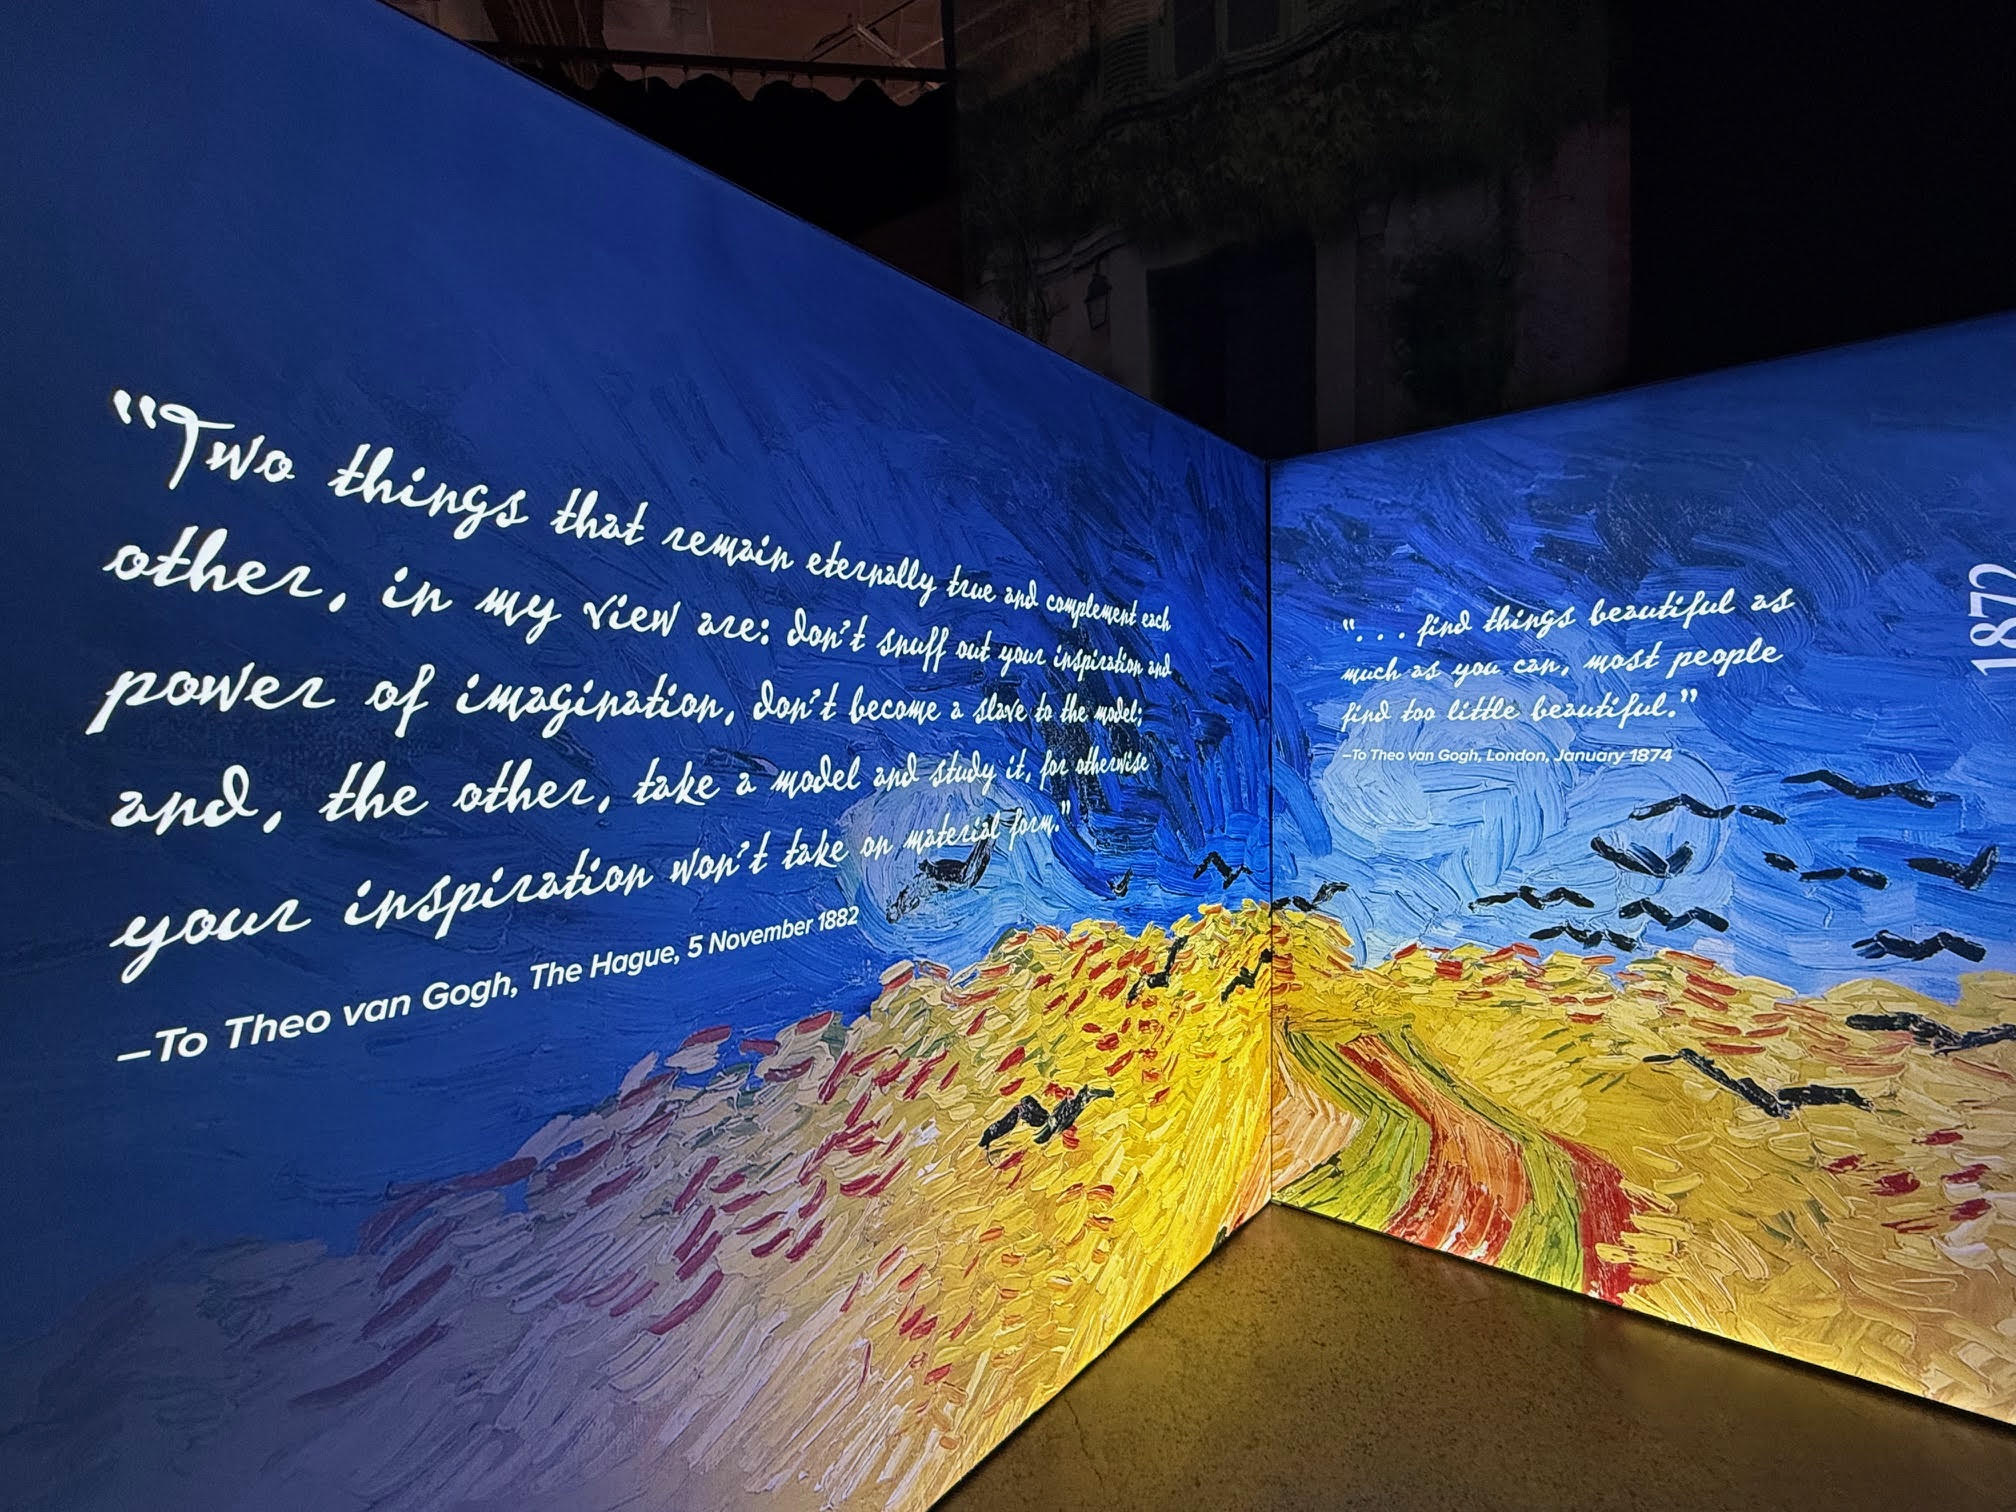 "Two things that remain eternally true and complement each
other, in my view are: don't snuff out your inspiration and
power of imagination, don't become a slave to the model;
and, the other, take a model and study it, for otherwise
your inspiration won't take on material form."
—To Theo van Gogh, The Hague, 5 November 1882
". . . find things beautiful as
much as you can, most people
find too little beautiful."
—To Theo van Gogh, London, January 1874
1872